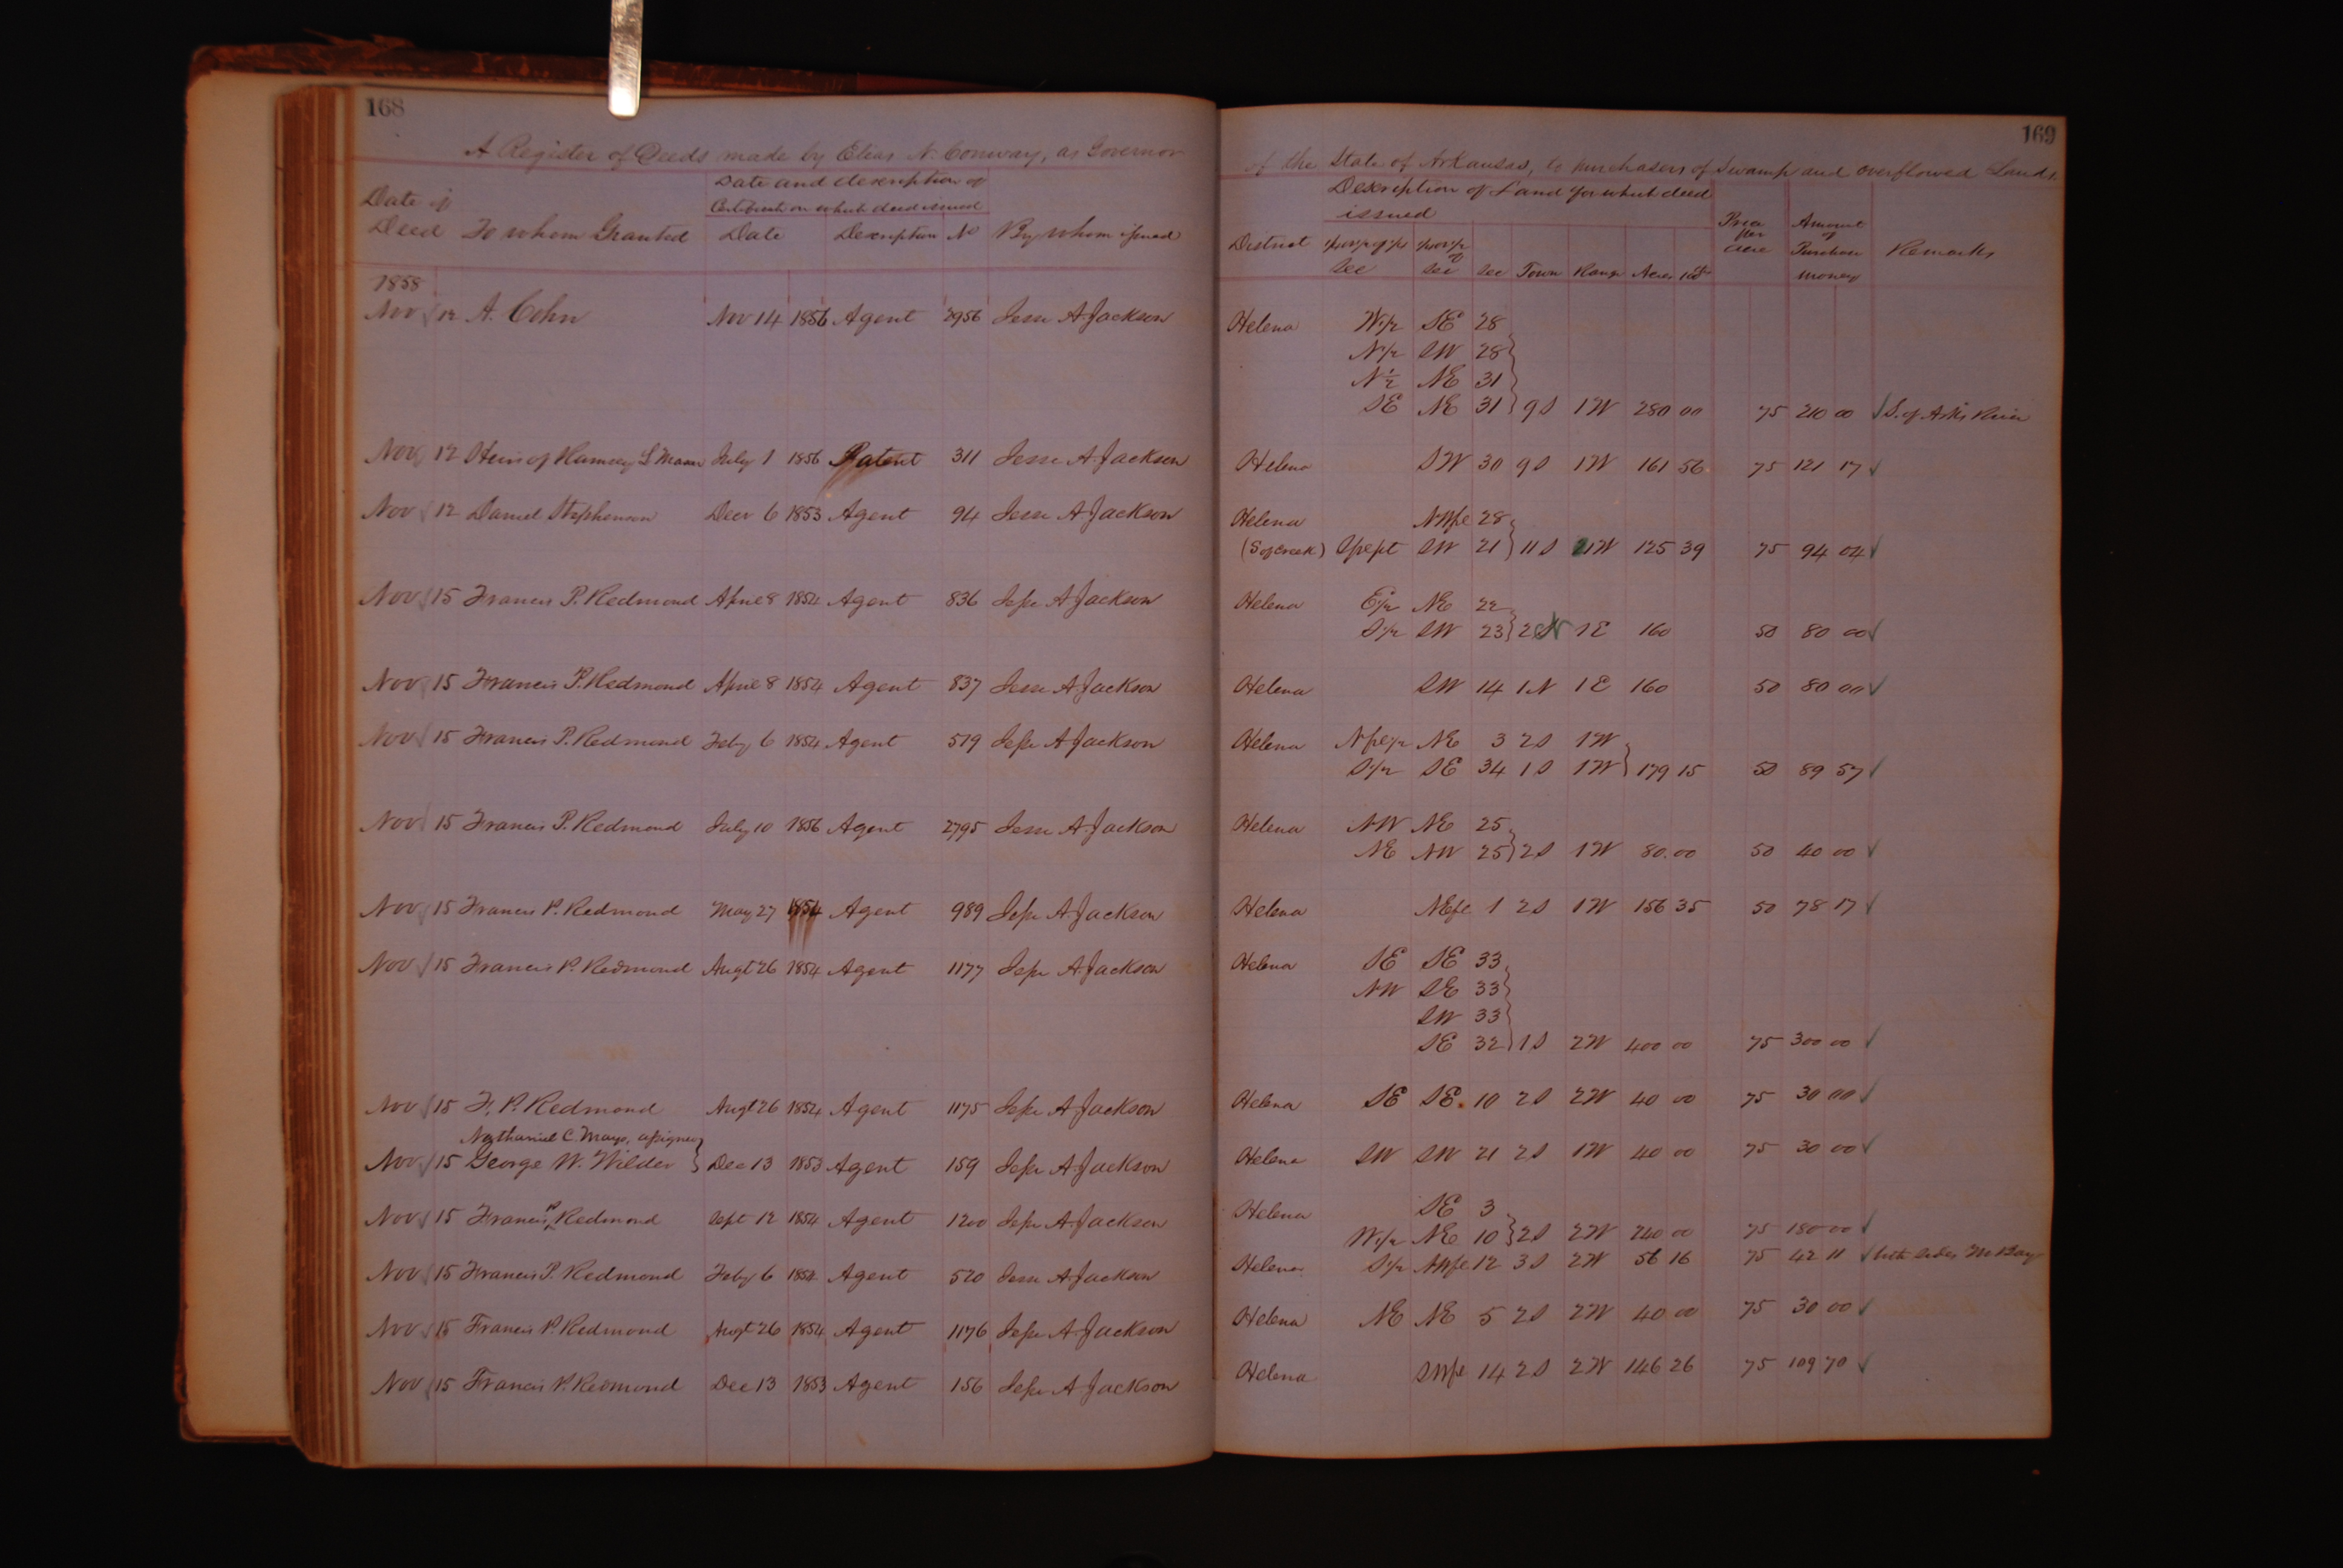 168
A Register of Deeds made by Elias N. Conway, as Governor
Date of Deed
To whom Granted
Date and description of
Certificate on which deed issued
Date Description No
By whom issued
1858
Nov 12 A. Cohn Nov 14 1856 Agent 2956 Jesse A Jackson
Nov 12 Heirs of Ramsey L Mason July 1 1856 Patent 311 Jesse A Jackson
Nov 12 Daniel Stephenson Decr 6 1853 Agent 94 Jesse A Jackson
Nov 15 Francis P. Redmond April 8 1854 Agent 836 Jesse A Jackson
Nov 15 Francis P. Redmond April 8 1854 Agent 837 Jesse A Jackson
Nov 15 Francis P. Redmond Feby 6 1854 Agent 519 Jesse A Jackson
Nov 15 Francis P. Redmond July 10 1856 Agent 2795 Jesse A Jackson
Nov 15 Francis P. Redmond May 27 1854 Agent 989 Jesse A Jackson
Nov 15 Francis P. Redmond Augt 26 1854 Agent 1177 Jesse A Jackson
Nov 15 F. P. Redmond Augt 26 1854 Agent 1175 Jesse A Jackson
Nathaniel C. Mays, assignee
Nov 15 George W. Wilder Dec 13 1853 Agent 159 Jesse A Jackson
Nov 15 Francis P. Redmond Sept 12 1854 Agent 1200 Jesse A Jackson
Nov 15 Francis P. Redmond Feby 6 1854 Agent 520 Jesse A Jackson
Nov 15 Francis P. Redmond Augt 26 1854 Agent 1176 Jesse A Jackson
Nov 15 Francis P. Redmond Dec 13 1853 Agent 156 Jesse A Jackson
169
of the State of Arkansas, to purchasers of Swamp and overflowed Lands.
Description of Land for which deed
issued
District
Sec
Sec
Sec Town Range Acres
Price per acre
Amount of Purchase money
Remarks
Helena W 1/2 SE 28
N 1/2 SW 28
N 1/2 NE 31
SE NE 31 9S 1W 280 00 75 210 00 ✓ S. of Arks River
Helena SW 30 9S 1W 161 56 75 121 17 ✓
Helena NWfr 28
(S of creek) SW 21 11S 1W 125 39 75 94 04 ✓
Helena E 1/2 NE 22
S 1/2 SW 23 2N 1E 160 50 80 00 ✓
Helena SW 14 1N 1E 160 50 80 00 ✓
Helena N fr 1/2 NE 3 2S 1W
S 1/2 SE 34 1S 1W 179 15 50 89 57 ✓
Helena NW NE 25
NE NW 25 2S 1W 80.00 50 40 00 ✓
Helena NEfr 1 2S 1W 156 35 50 78 17 ✓
Helena SE SE 33
NW SE 33
SW 33
SE 32 1S 2W 400 00 75 300 00 ✓
Helena SE SE 10 2S 2W 40 00 75 30 00 ✓
Helena SW SW 21 2S 1W 40 00 75 30 00 ✓
Helena SE 3
W 1/2 NE 10 2S 2W 240 00 75 180 00 ✓
Helena S 1/2 NWfr 12 3S 2W 56 16 75 42 11 ✓ both sides
Helena NE NE 5 2S 2W 40 00 75 30 00 ✓
Helena SWfr 14 2S 2W 146 26 75 109 70 ✓